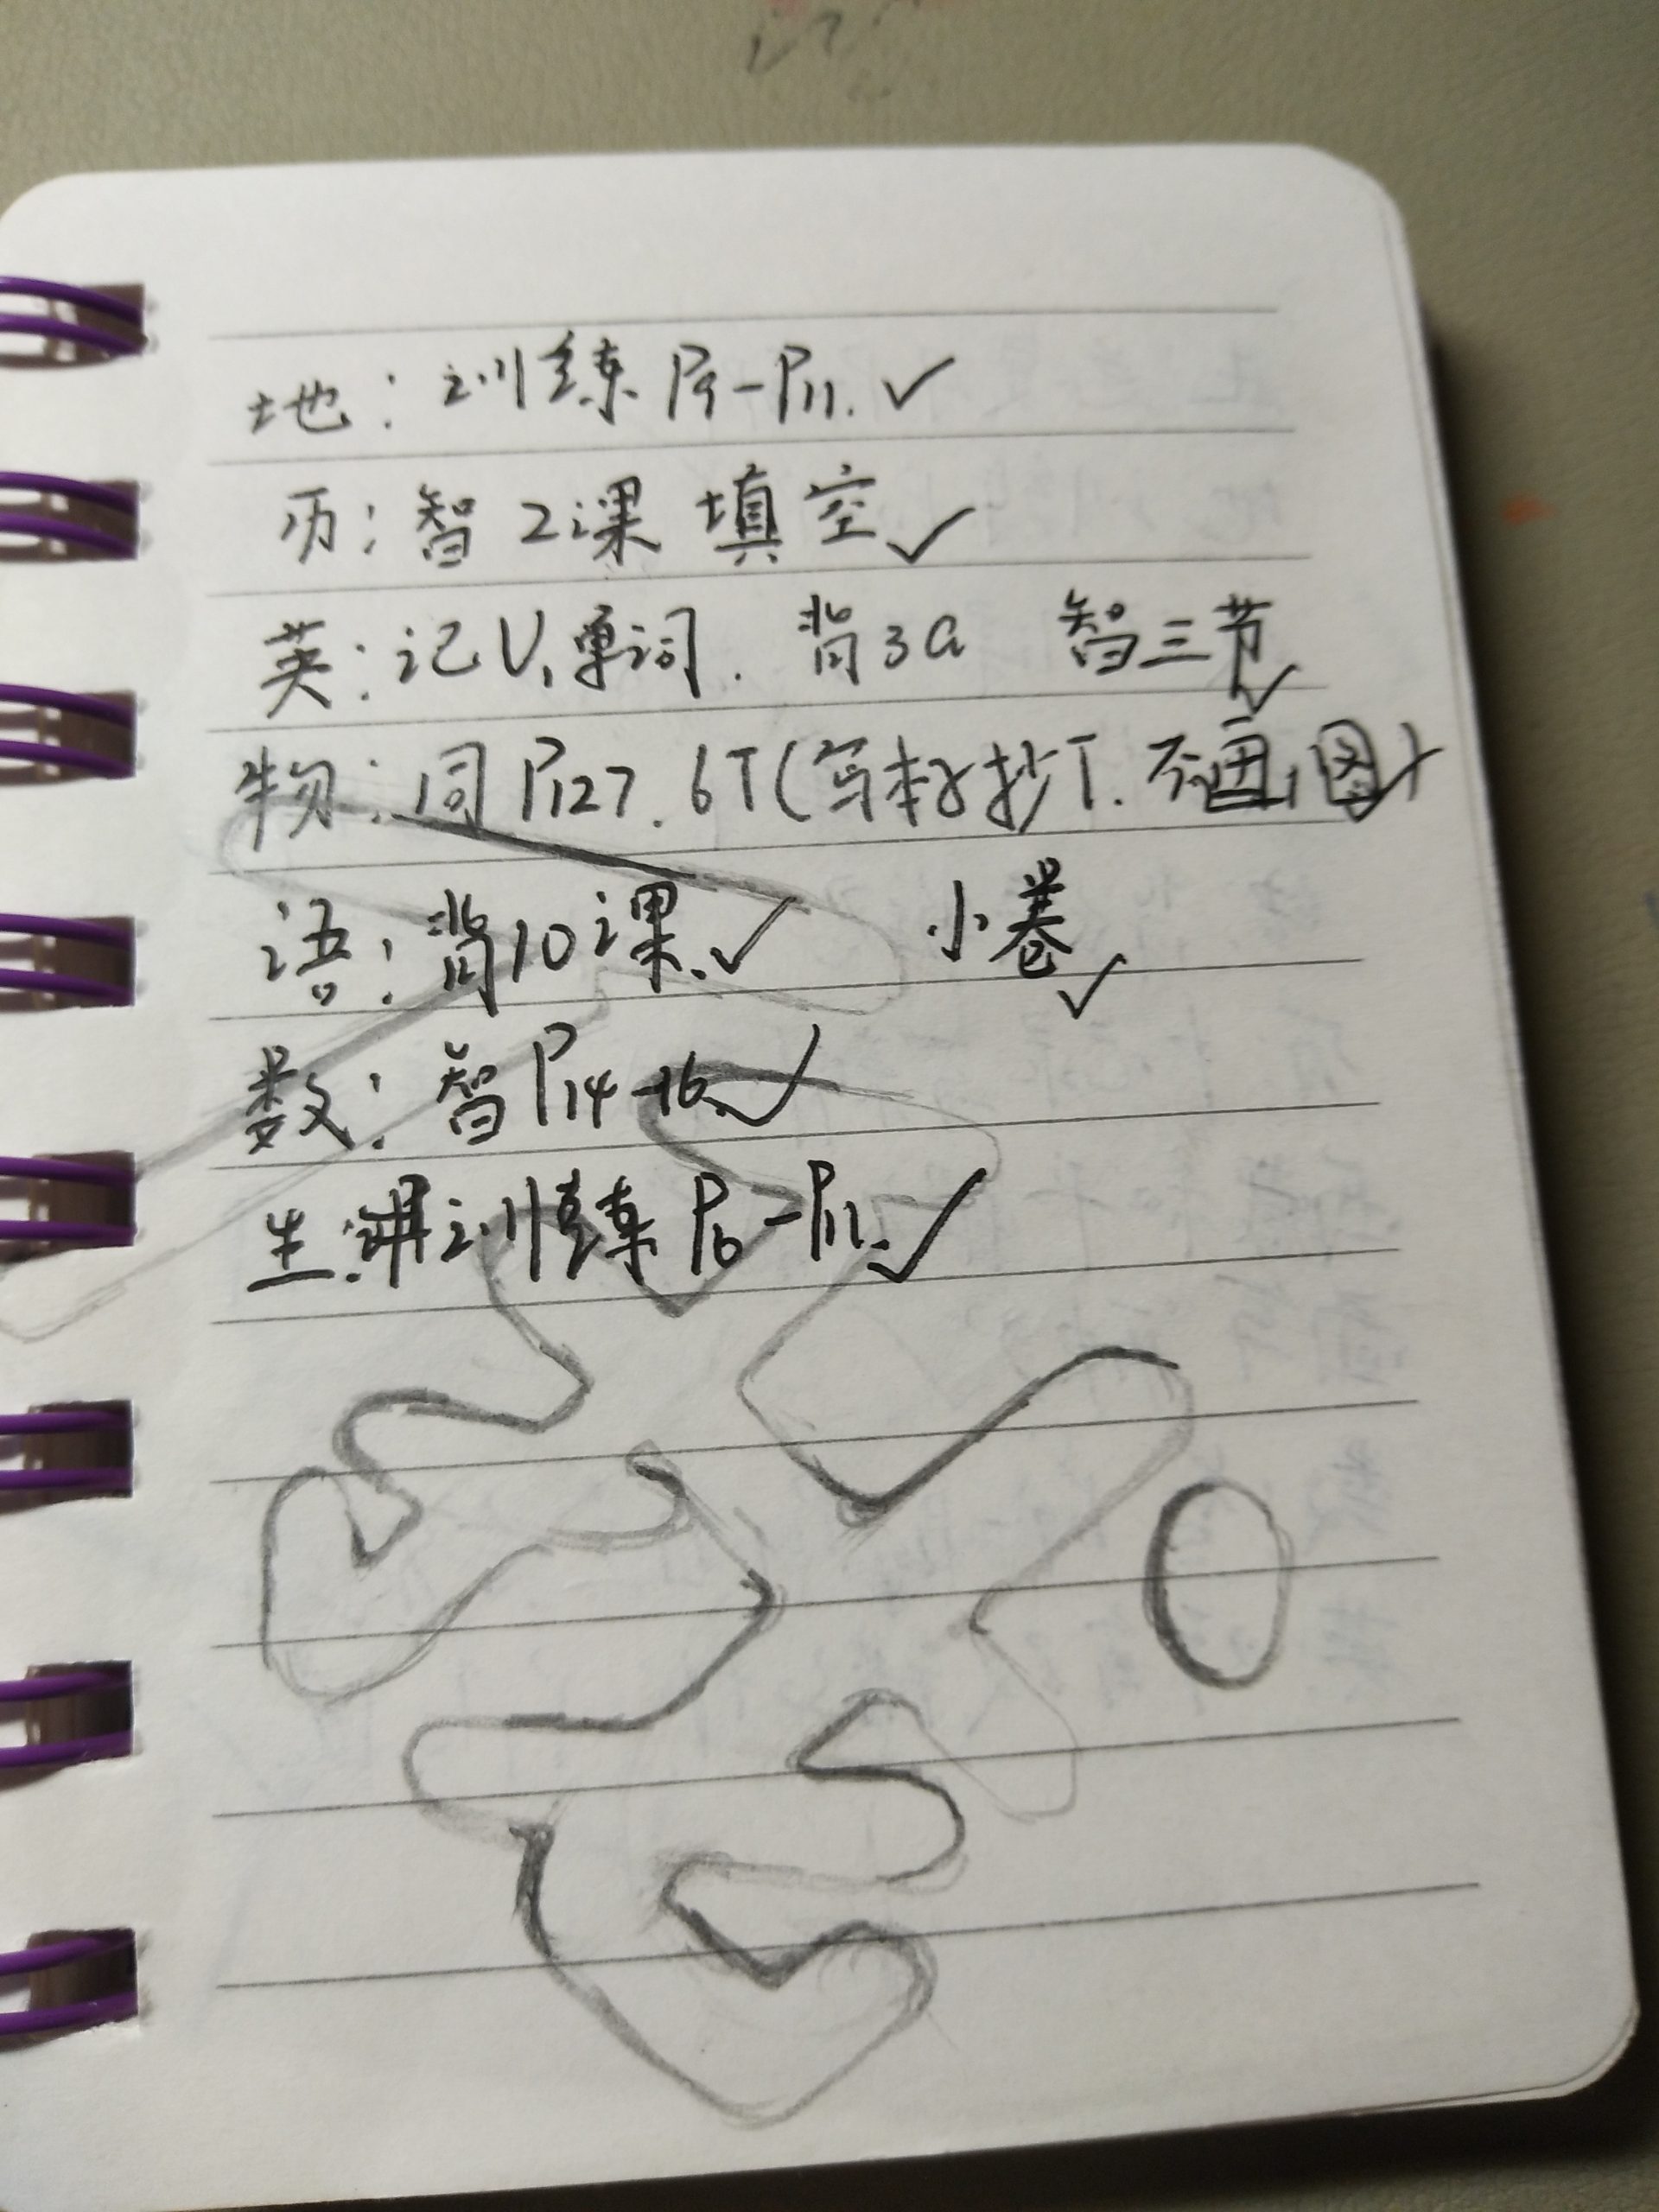 地：训练 P9-P11. ✓
历：智 2课 填空 ✓
英：记U1单词. 背3a 智三节 ✓
物：同P127. 6T(写本子抄T. 不画图) ✓
语：背10课. ✓ 小卷 ✓
数：智P14-16. ✓
生: 训练 P6-P11. ✓